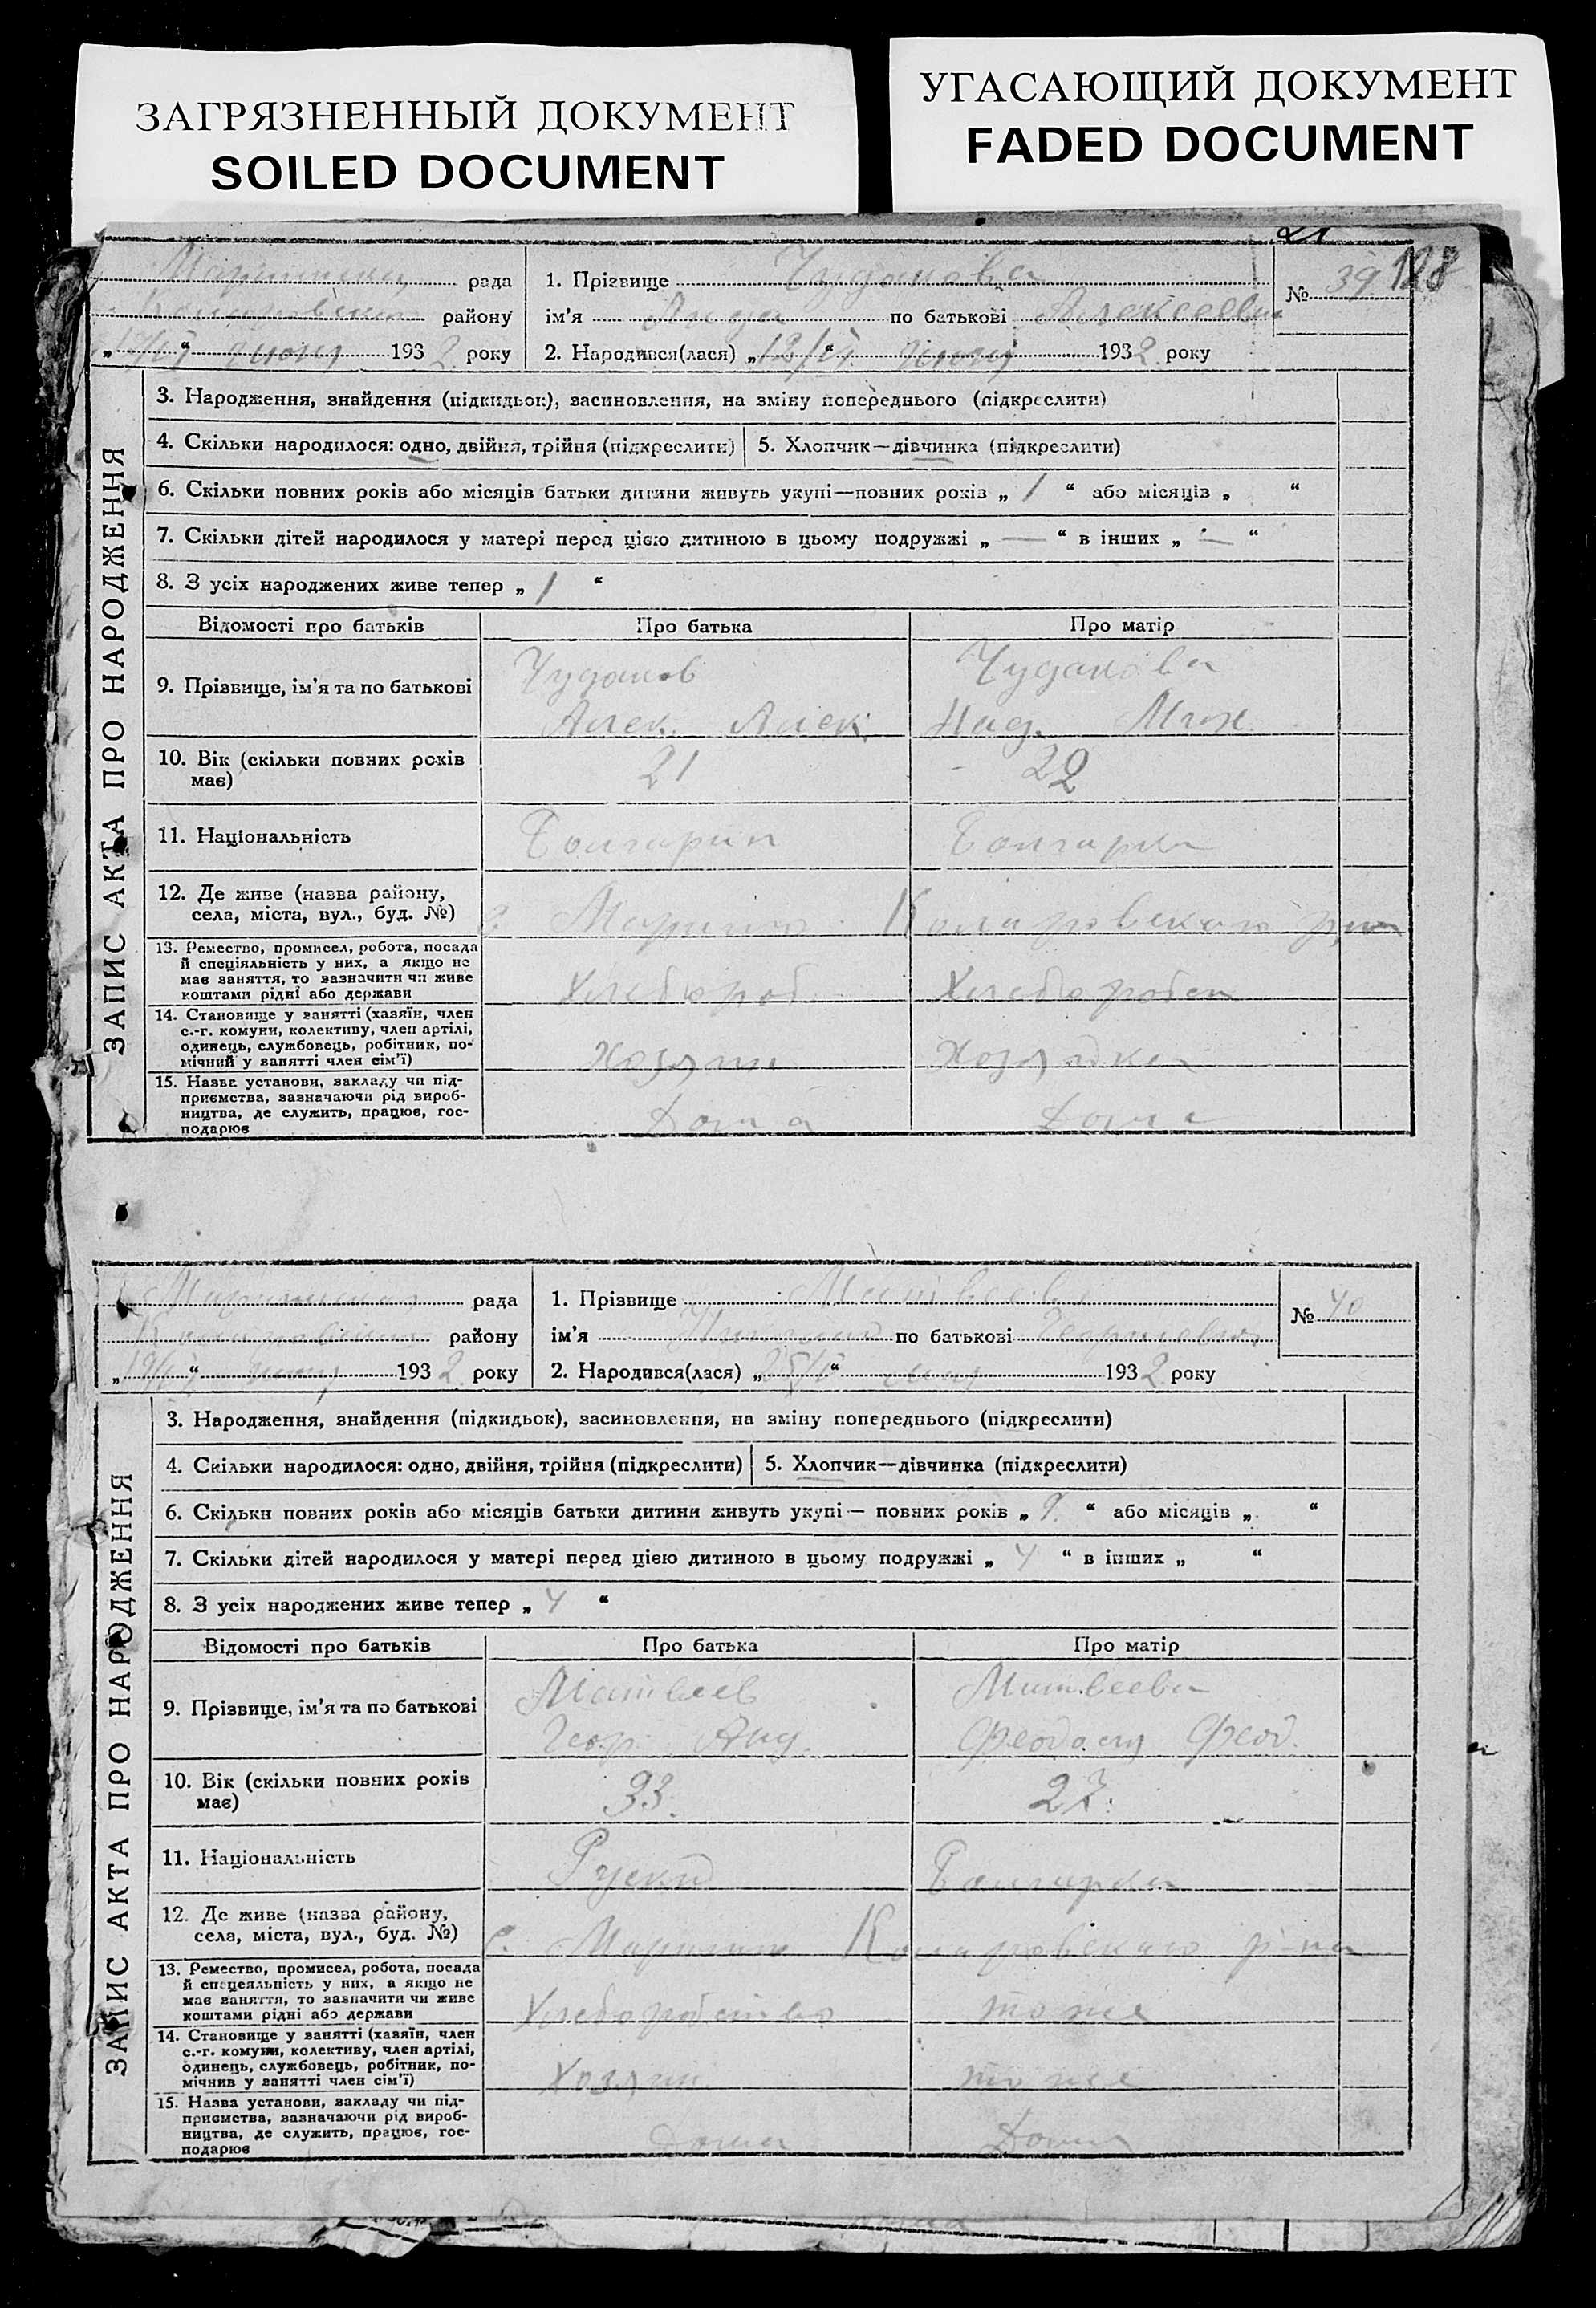 ЗАГРЯЗНЕННЫЙ ДОКУМЕНТ
SOILED DOCUMENT
УГАСАЮЩИЙ ДОКУМЕНТ
FADED DOCUMENT
128
рада
району
193 2 року
1. Прізвище
ім'я по батькові
2. Народився(лася) 1932 року
№ 39
ЗАПИС АКТА ПРО НАРОДЖЕННЯ
3. Народження, знайдення (підкидьок), засиновлення, на зміну попереднього (підкреслити)
4. Скільки народилося: одно, двійня, трійня (підкреслити) 5. Хлопчик—дівчинка (підкреслити)
6. Скільки повних років або місяців батьки дитини живуть укупі—повних років „ 1 “ або місяців „ “
7. Скільки дітей народилося у матері перед цією дитиною в цьому подружжі „ — “ в інших „ — “
8. З усіх народжених живе тепер „ 1 “
Відомості про батьків Про батька Про матір
9. Прізвище, ім'я та по батькові
Алек. Алек.
Над. Мих.
10. Вік (скільки повних років
має)
21 22
11. Національність Болгарин Болгарка
12. Де живе (назва району,
села, міста, вул., буд. №)
13. Ремество, промисел, робота, посада
й спеціяльність у них, а якщо не
має заняття, то зазначити чи живе
коштами рідні або держави
Хлебороб
14. Становище у занятті (хазяїн, член
с.-г. комуни, колективу, член артілі,
одинець, службовець, робітник, по-
мічний у занятті член сім'ї)
Хозяин Хозяйка
15. Назва установи, закладу чи під-
приємства, зазначаючи рід вироб-
ництва, де служить, працює, гос-
подарює
Дома Дома
рада
району
193 2 року
1. Прізвище Матвеев
ім'я по батькові
2. Народився(лася) мая 1932 року
№ 40
ЗАПИС АКТА ПРО НАРОДЖЕННЯ
3. Народження, знайдення (підкидьок), засиновлення, на зміну попереднього (підкреслити)
4. Скільки народилося: одно, двійня, трійня (підкреслити) 5. Хлопчик—дівчинка (підкреслити)
6. Скільки повних років або місяців батьки дитини живуть укупі — повних років „ 9 “ або місяців „ “
7. Скільки дітей народилося у матері перед цією дитиною в цьому подружжі „ 4 “ в інших „ “
8. З усіх народжених живе тепер „ 4 “
Відомості про батьків Про батька Про матір
9. Прізвище, ім'я та по батькові
Матвеев Матвеева
Геор. Анд. Феод.
10. Вік (скільки повних років
має)
33. 27.
11. Національність Руский Болгарка
12. Де живе (назва району,
села, міста, вул., буд. №)
13. Ремество, промисел, робота, посада
й спецеяльність у них, а якщо не
має заняття, то зазначити чи живе
коштами рідні або держави
Хлеборобство тоже
14. Становище у занятті (хазяїн, член
с.-г. комуни, колективу, член артілі,
одинець, службовець, робітник, по-
мічнив у занятті член сім'ї)
Хозяин тоже
15. Назва установи, закладу чи під-
приємства, зазначаючи рід вироб-
ництва, де служить, працює, гос-
подарює
Дома Дома